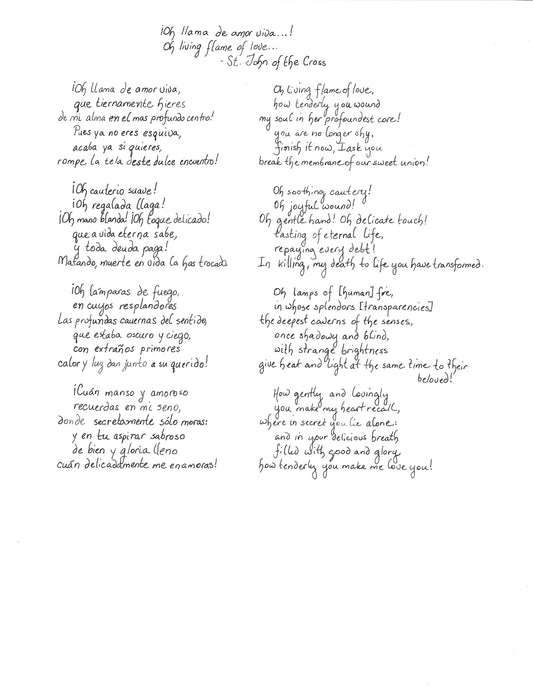 ¡Oh llama de amor viva...!
Oh living flame of love...
- St. John of the Cross
¡Oh llama de amor viva,
que tiernamente hieres
de mi alma en el mas profundo centro!
Pues ya no eres esquiva,
acaba ya si quieres,
rompe la tela deste dulce encuentro!
¡Oh cauterio suave!
¡Oh regalada llaga!
¡Oh mano blanda! ¡Oh toque delicado!
que a vida eterna sabe,
y toda deuda paga!
Matando, muerte en vida la has trocado
¡Oh lámparas de fuego,
en cuyos resplandores
Las profundas cavernas del sentido,
que estaba oscuro y ciego,
con extraños primores
calor y luz dan junto a su querido!
¡Cuán manso y amoroso
recuerdas en mi seno,
donde secretamente solo moras:
y en tu aspirar sabroso
de bien y gloria lleno
cuán delicadamente me enamoras!
Oh living flame of love,
how tenderly you wound
my soul in her profoundest core!
you are no longer shy,
finish it now, I ask you
break the membrane of our sweet union!
Oh soothing cautery!
Oh joyful wound!
Oh gentle hand! Oh delicate touch!
tasting of eternal life,
repaying every debt!
In killing, my death to life you have transformed.
Oh lamps of [human] fire,
in whose splendors [transparencies]
the deepest caverns of the senses,
once shadowy and blind,
with strange brightness
give heat and light at the same time to their
beloved!
How gently and lovingly
you make my heart recall,
where in secret you lie alone:
and in your delicious breath
filled with good and glory
how tenderly you make me love you!